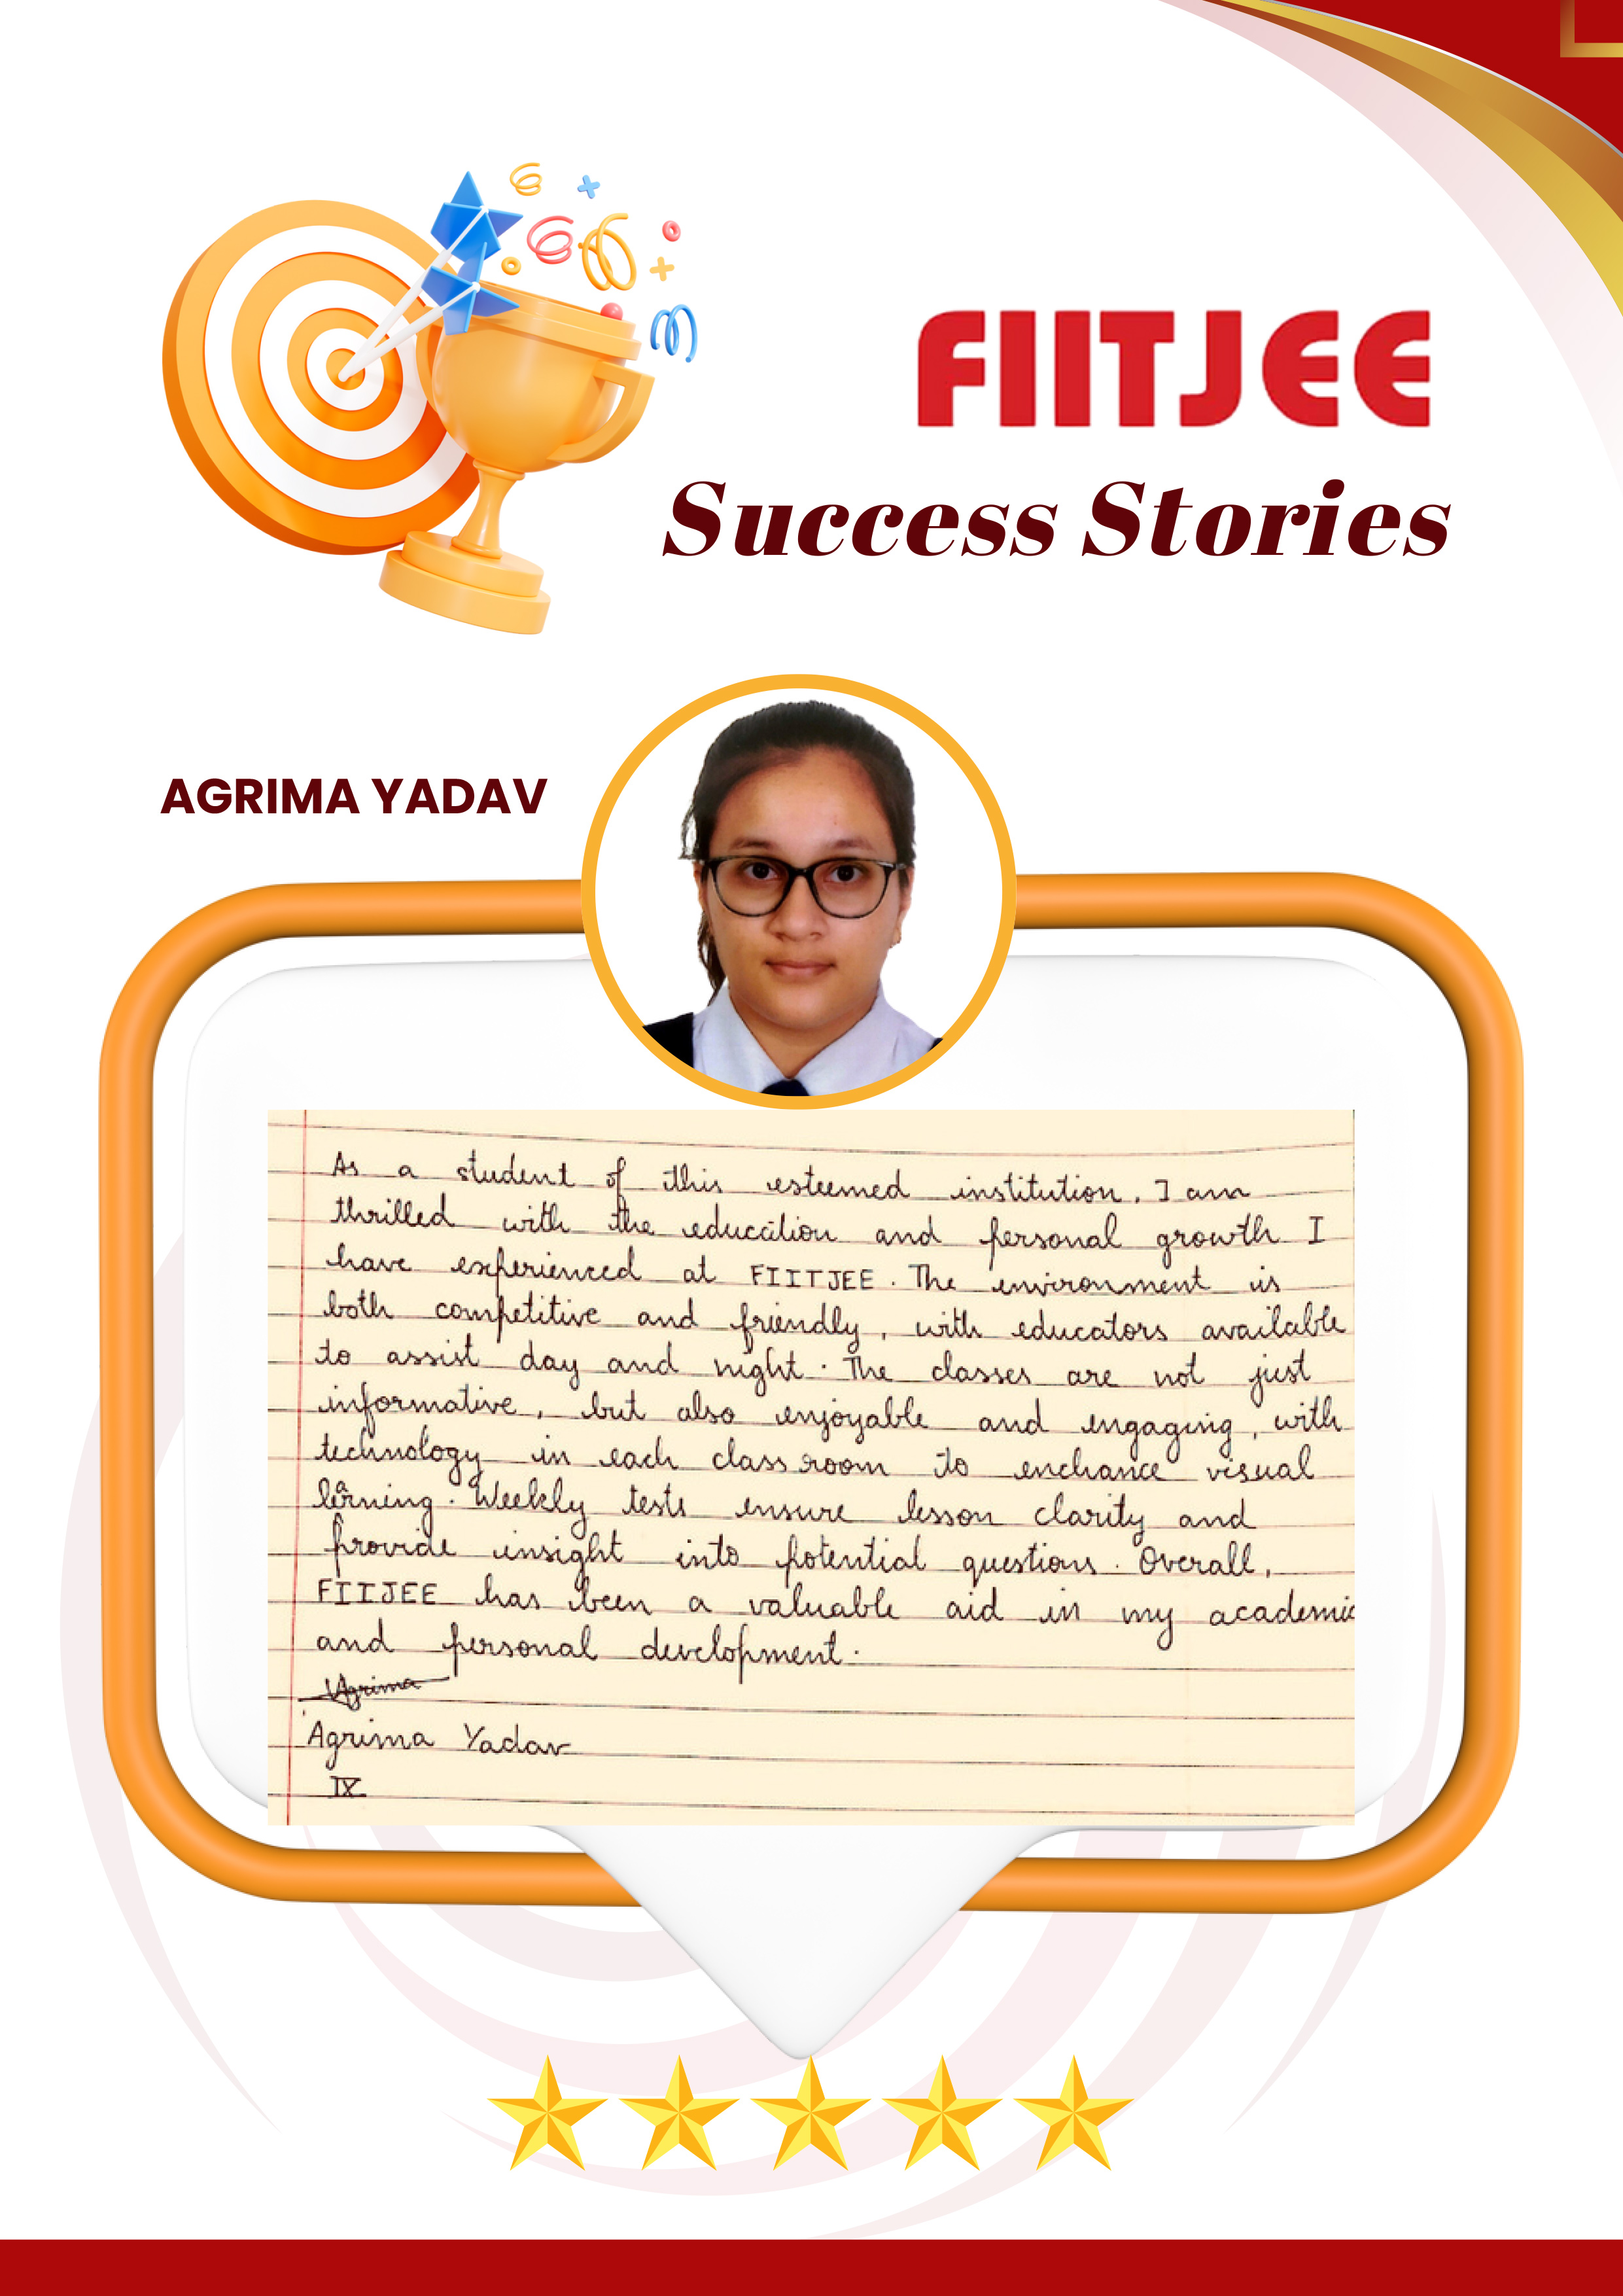 FIITJEE
Success Stories
AGRIMA YADAV
As a student of this esteemed institution, I am
thrilled with the education and personal growth I
have experienced at FIITJEE. The environment is
both competitive and friendly, with educators available
to assist day and night. The classes are not just
informative, but also enjoyable and engaging, with
technology in each classroom to enchance visual
learning. Weekly tests ensure lesson clarity and
provide insight into potential questions. Overall,
FIIJEE has been a valuable aid in my academic
and personal development.
Agrima
Agrima Yadav
IX